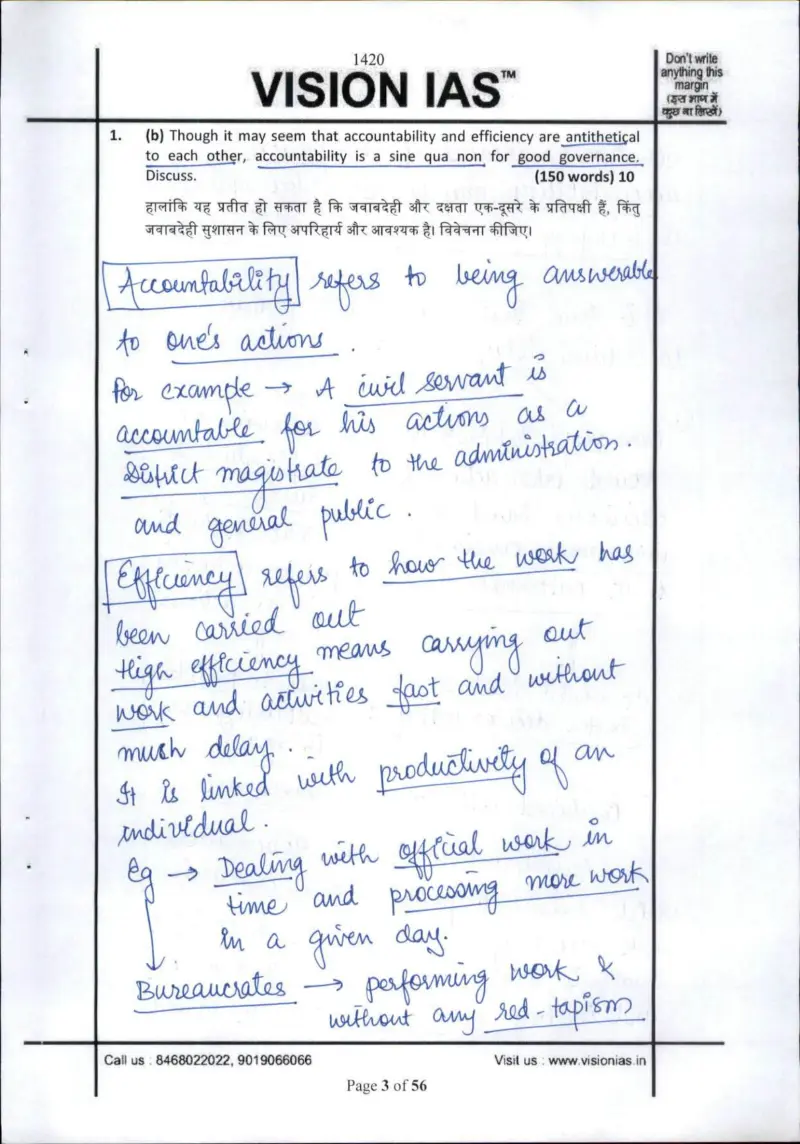 1420
VISION IAS™
Don't write
anything this
margin
(इस भाग में
कुछ ना लिखें)
1. (b) Though it may seem that accountability and efficiency are antithetical
to each other, accountability is a sine qua non for good governance.
Discuss. (150 words) 10
हालांकि यह प्रतीत हो सकता है कि जवाबदेही और दक्षता एक-दूसरे के प्रतिपक्षी हैं, किंतु
जवाबदेही सुशासन के लिए अपरिहार्य और आवश्यक है। विवेचना कीजिए।
Accountability refers to being answerable
to one's actions.
For example → A civil servant is
accountable for his actions as a
District magistrate to the administration.
and general public.
Efficiency refers to how the work has
been carried out
High efficiency means carrying out
work and activities fast and without
much delay.
It is linked with productivity of an
individual.
Eg → Dealing with official work in
time and processing more work
in a given day.
Bureaucrates → performing work &
without any red-tapism
Call us : 8468022022, 9019066066 Visit us : www.visionias.in
Page 3 of 56